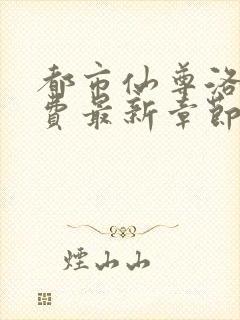 都市仙尊洛
費最新章節
煙山山